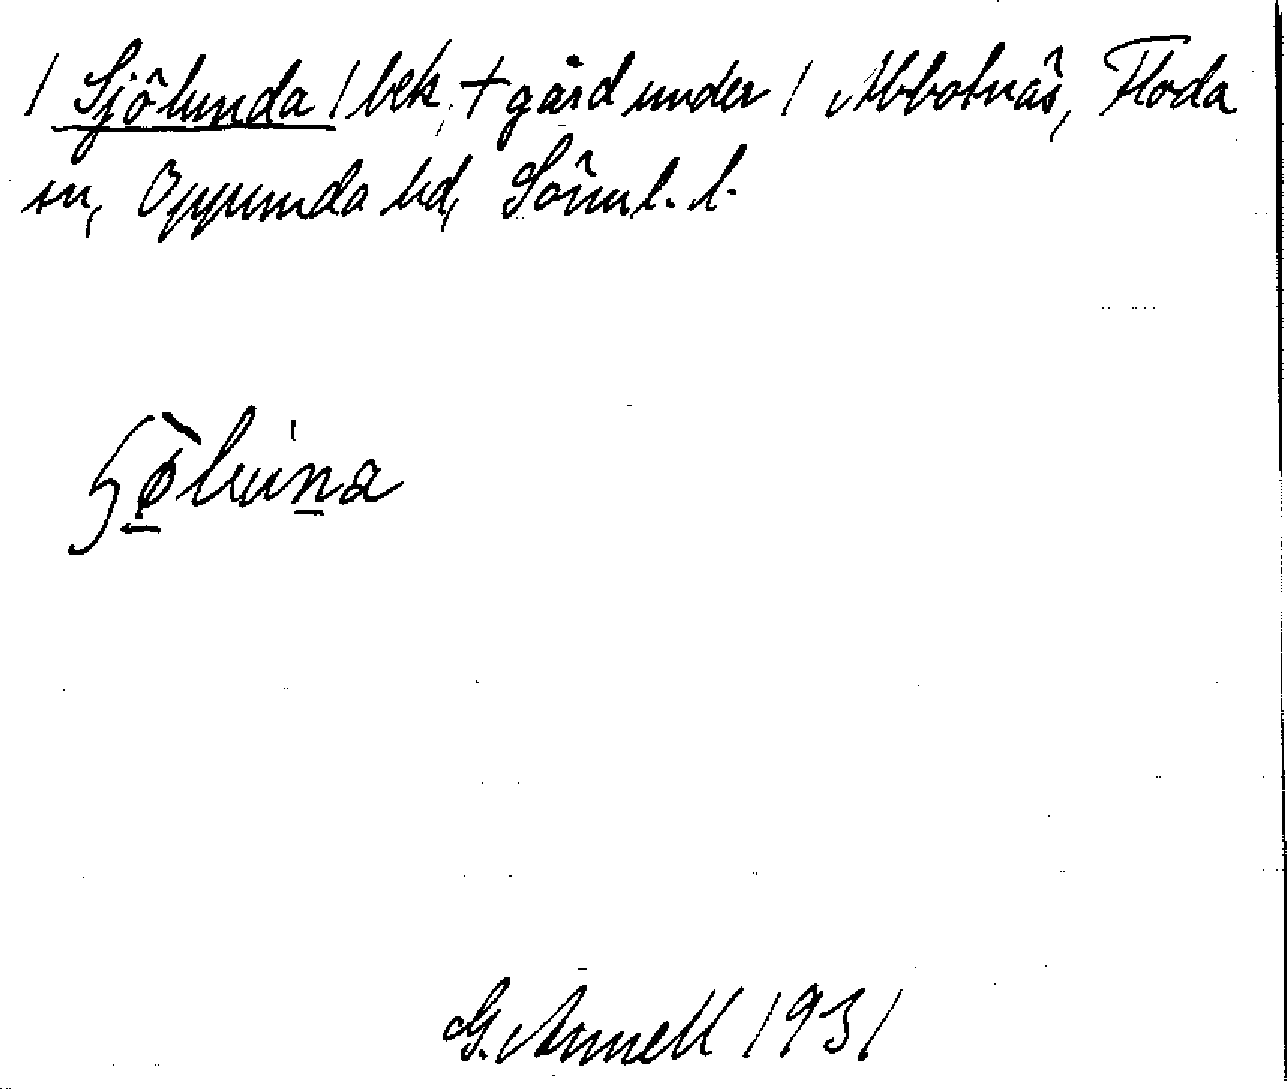 1 Sjölunda 1 bek, + gård under 1 Abbotnäs, Floda
sn, Oppunda hd, Söml. l.
G. Annell 1931